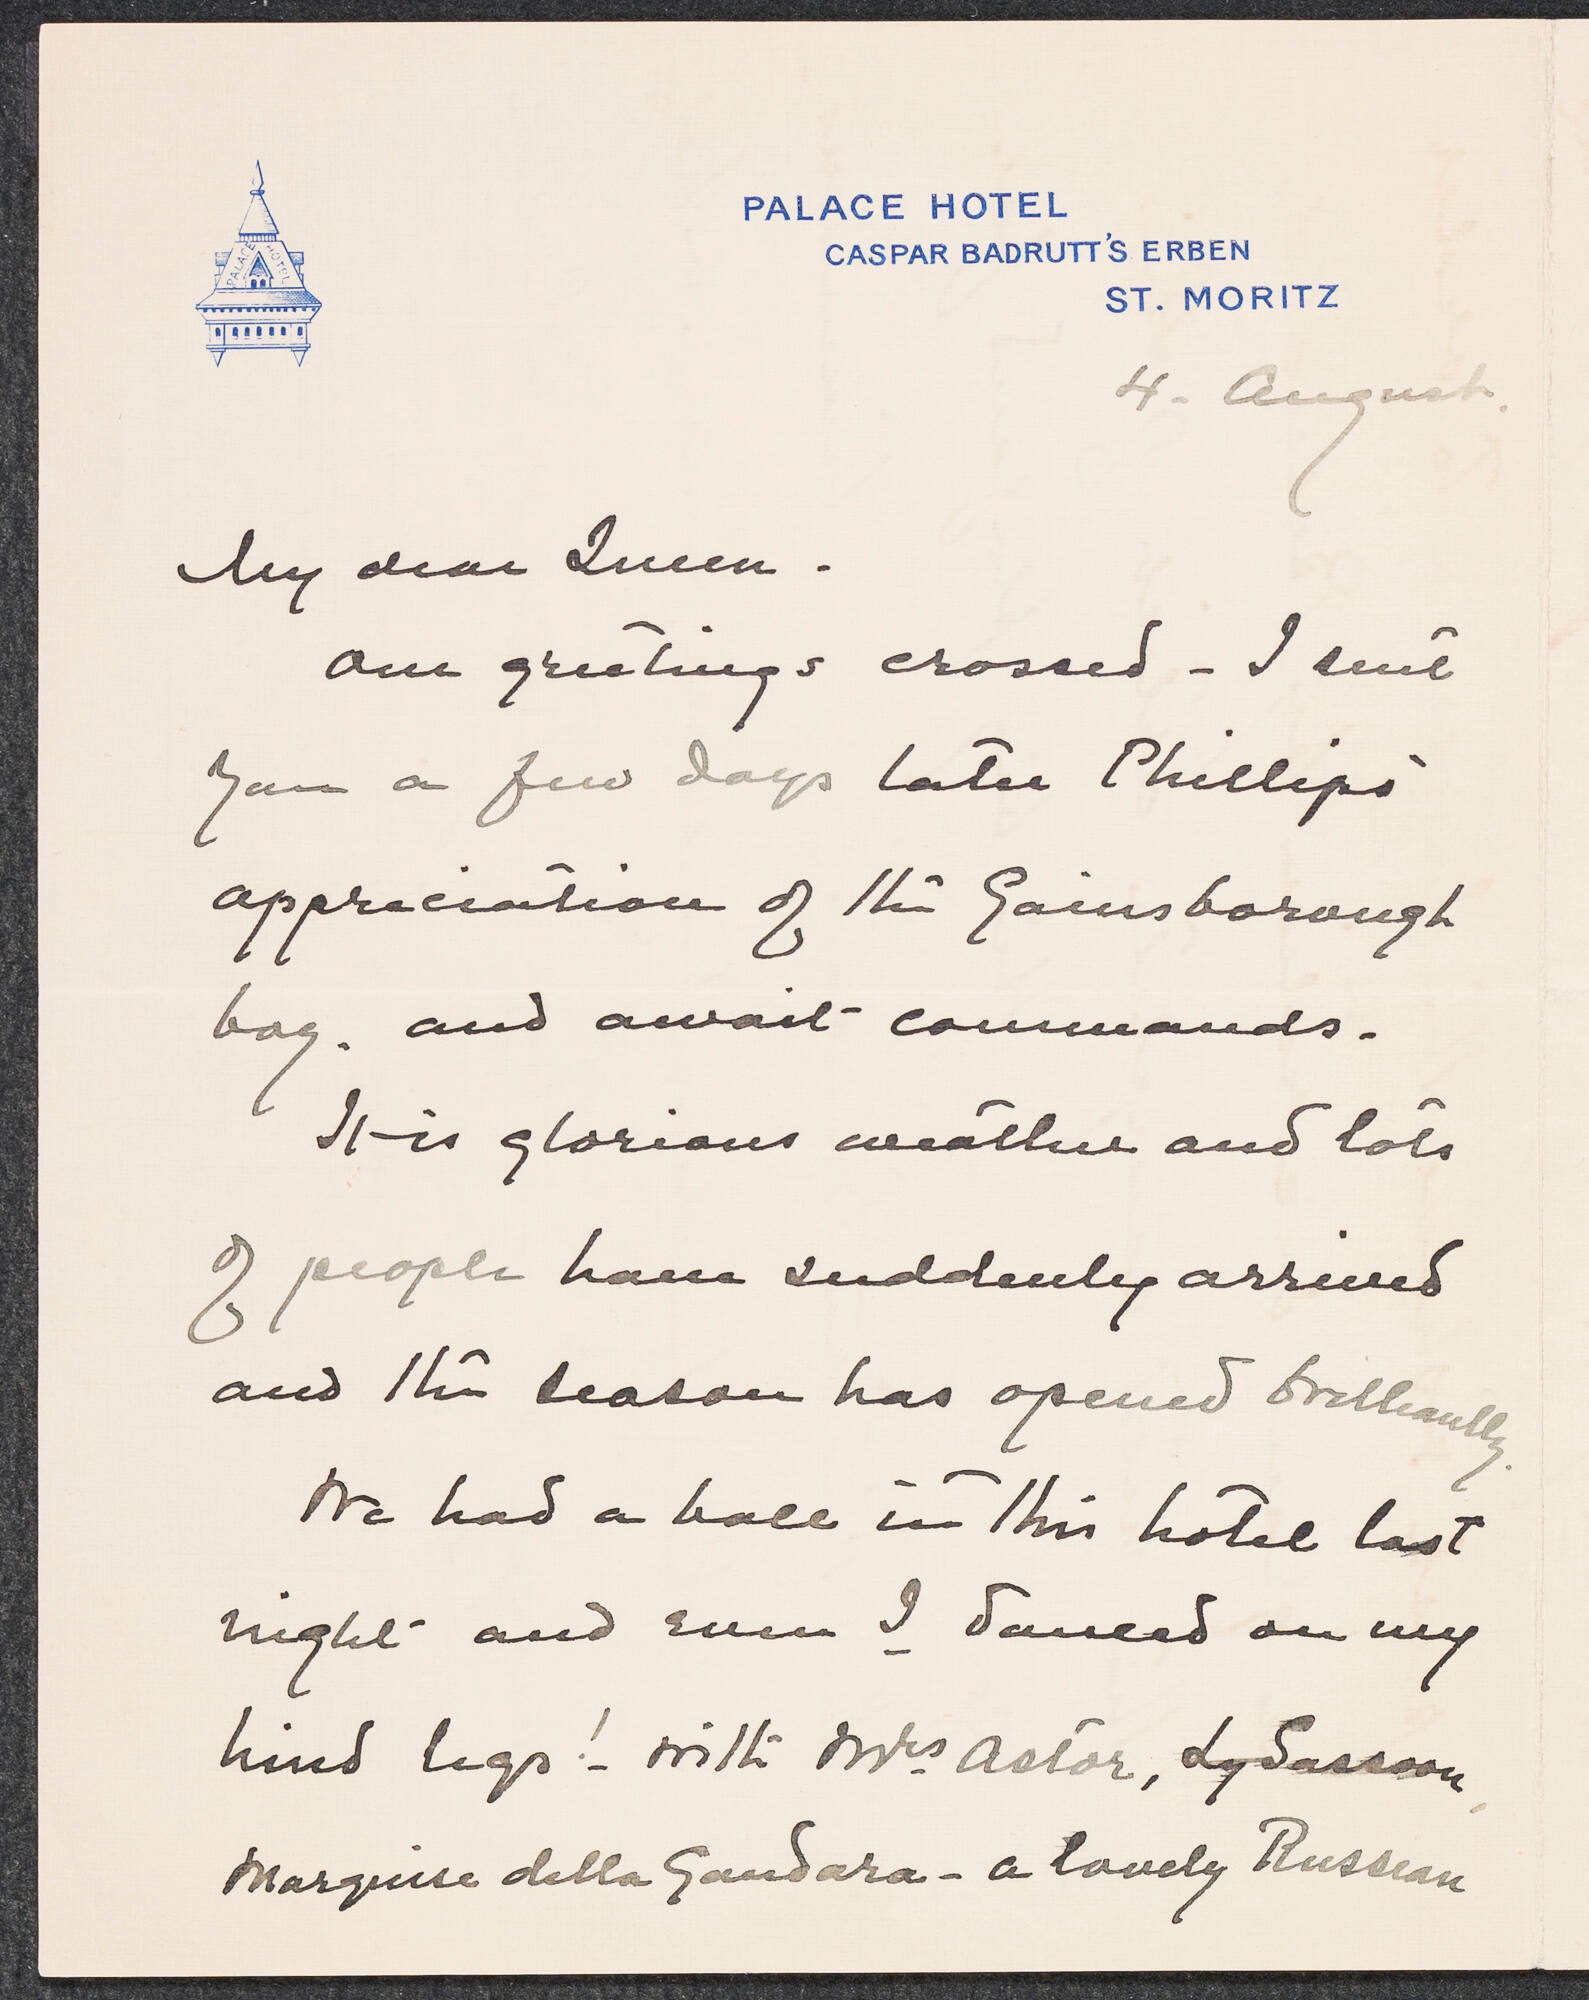 PALACE HOTEL
PALACE HOTEL
CASPAR BADRUTT'S ERBEN
ST. MORITZ
4 - August.
My dear Queen -
Our greetings crossed - I sent
you a few days later Phillips'
appreciation of the Gainsborough
boy. and await commands.
It is glorious weather and lots
of people have suddenly arrived
and the season has opened brilliantly.
We had a ball in this hotel last
night and even I danced on my
hind legs! - with Mrs Astor, Ly Sassoon,
Marquise della Gandara - a lovely Russian